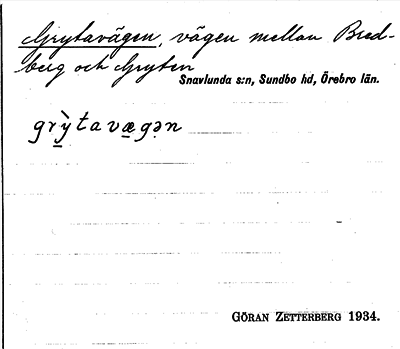 Grytavägen, vägen mellan Bred-
berg och Gryten
Snavlunda s:n, Sundbo hd, Örebro län.
grỳ̱tavæ̱gən
GÖRAN ZETTERBERG 1934.